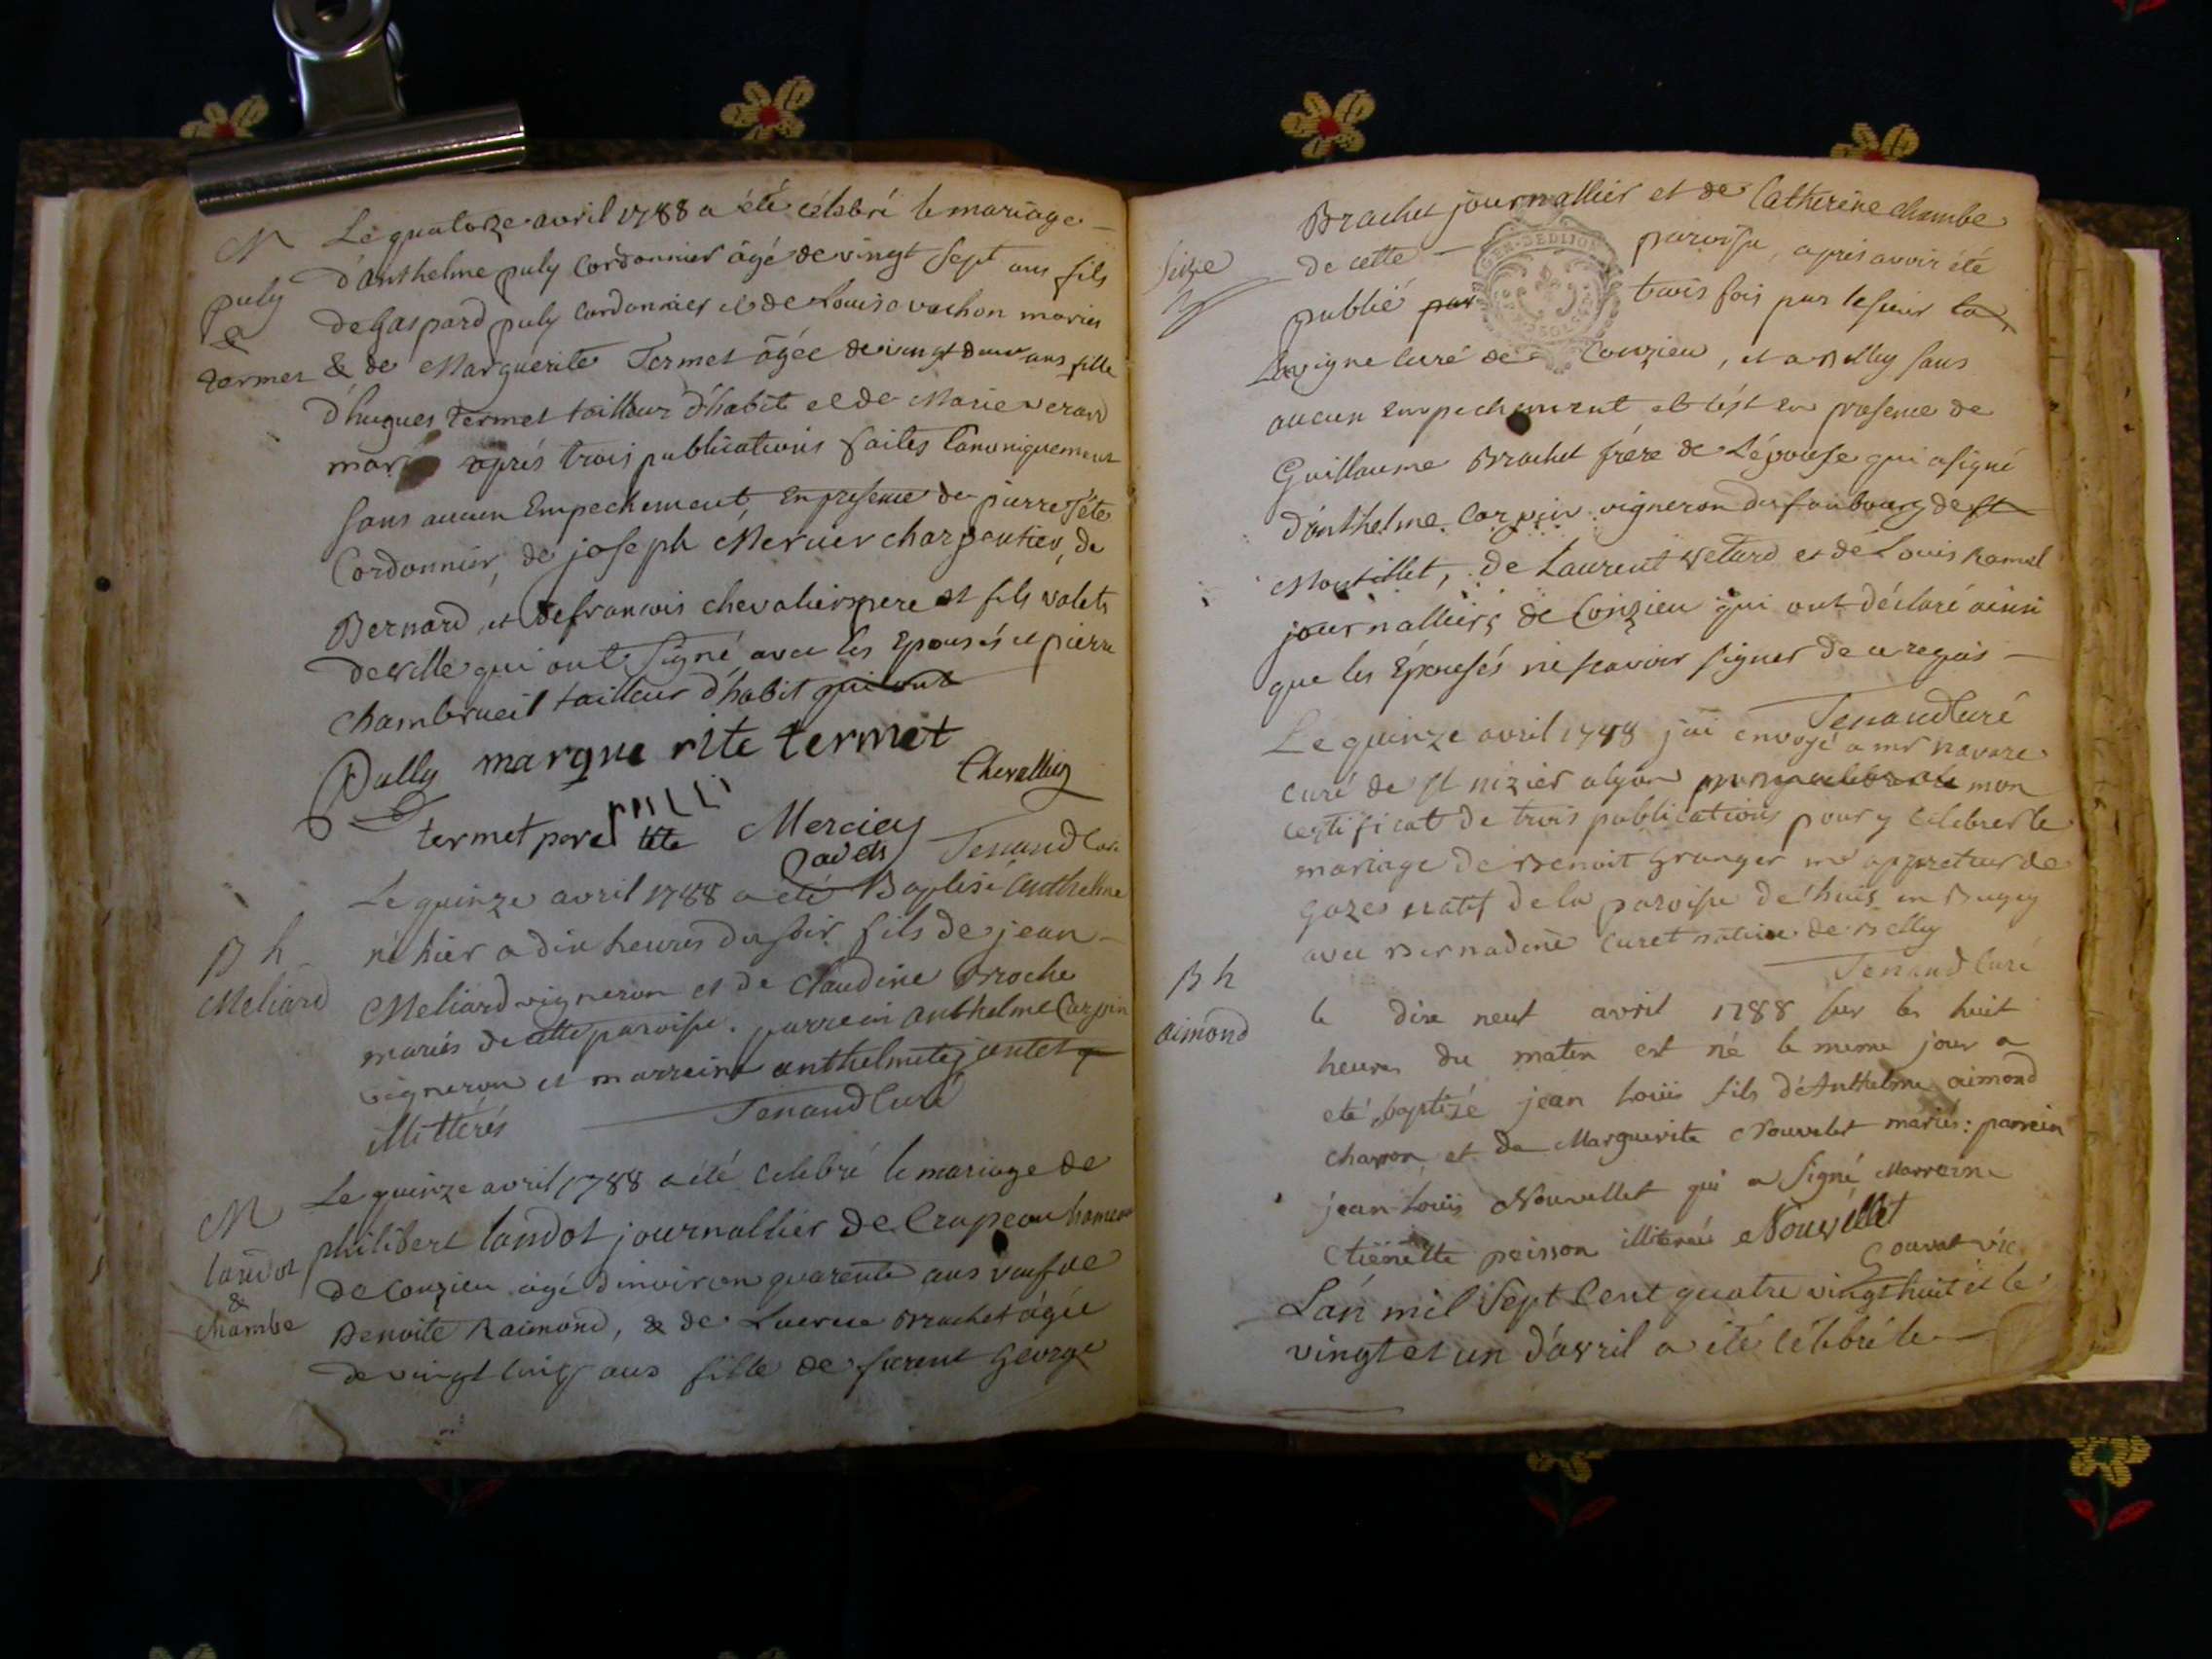 M
puly
&
termet
Le quatorze avril 1788 a été célébré le mariage
d'anthelme puly cordonnier âgé de vingt sept ans fils
de gaspard puly cordonnier et de Louise vachon mariés
& de Marguerite Termet âgée de vingt deux ans fille
d'hugues termet tailleur d'habits et de Marie
mariés aprés trois publications faites Canoniquement
sans aucun Empechement, En presence de pierre tête
Cordonnier, de joseph Mercier charpentier, de
Bernard, et de francois chevalier pere et fils valets
de ville qui ont Signé avec les Epousés et pierre
Chambrueil tailleur d'habit qui ont
Pully marque rite termet
Chevallier
termet pere tête Mercier
Tenand Curé
B h
Meliard
Le quinze avril 1788 a eté Baptisé Anthelme
né hier a dix heures du soir fils de jean
Meliard vigneron et de Claudine Broche
mariés de cette paroisse. parrein anthelme Carpin
vigneron et marreine anthelmete jantet
illitterés Tenand Curé
M
landot
&
chambe
Le quinze avril 1788 a été célébré le mariage de
philibert landot journallier de Crapeou hameau
de Conzieu âgé d'environ quarente ans veuf de
Benoite Raimond, & de Brachet âgée
de vingt cinq ans fille de George
Seize
Brachet journallier et de Catherine chambe
de cette paroisse, aprés avoir été
publié par trois fois par le sieur la
Lavigne Curé de Conzieu, et a Belley sans
aucun Empechement et c'est En presence de
Guillaume Brachet frére de L'épouse qui a signé
d'anthelme Carpin vigneron du faubourg de st
Moutillet, de Laurent Vetard et de Louis hamel
journalliers de Conzieu qui ont déclaré ainsi
que les Epousés ne scavoir signer de ce requis
Tenand Curé
Le quinze avril 1788 j'ai envoyé a mr navare
Curé de St nizier a lyon mon
certificat de trois publications pour y Célébrer le
mariage de Benoit Granger me appreteur de
gazes natif de la paroisse de huis en Bugey
avec Bernadine Curet native de Belley
Tenand Curé
B h
aimond
le dix neuf avril 1788 sur les huit
heures du matin est né le meme jour a
eté baptizé jean Louis fils d'Anthelme aimond
charron et de Marguerite Nouvelet mariés: parrein
jean-Louis Nouvellet qui a signé Marreine
Etienette poisson illiterée Nouvellet
Gouvat vic
L'an mil Sept Cent quatre vingt huit et le
vingt et un d'avril a été célébré le